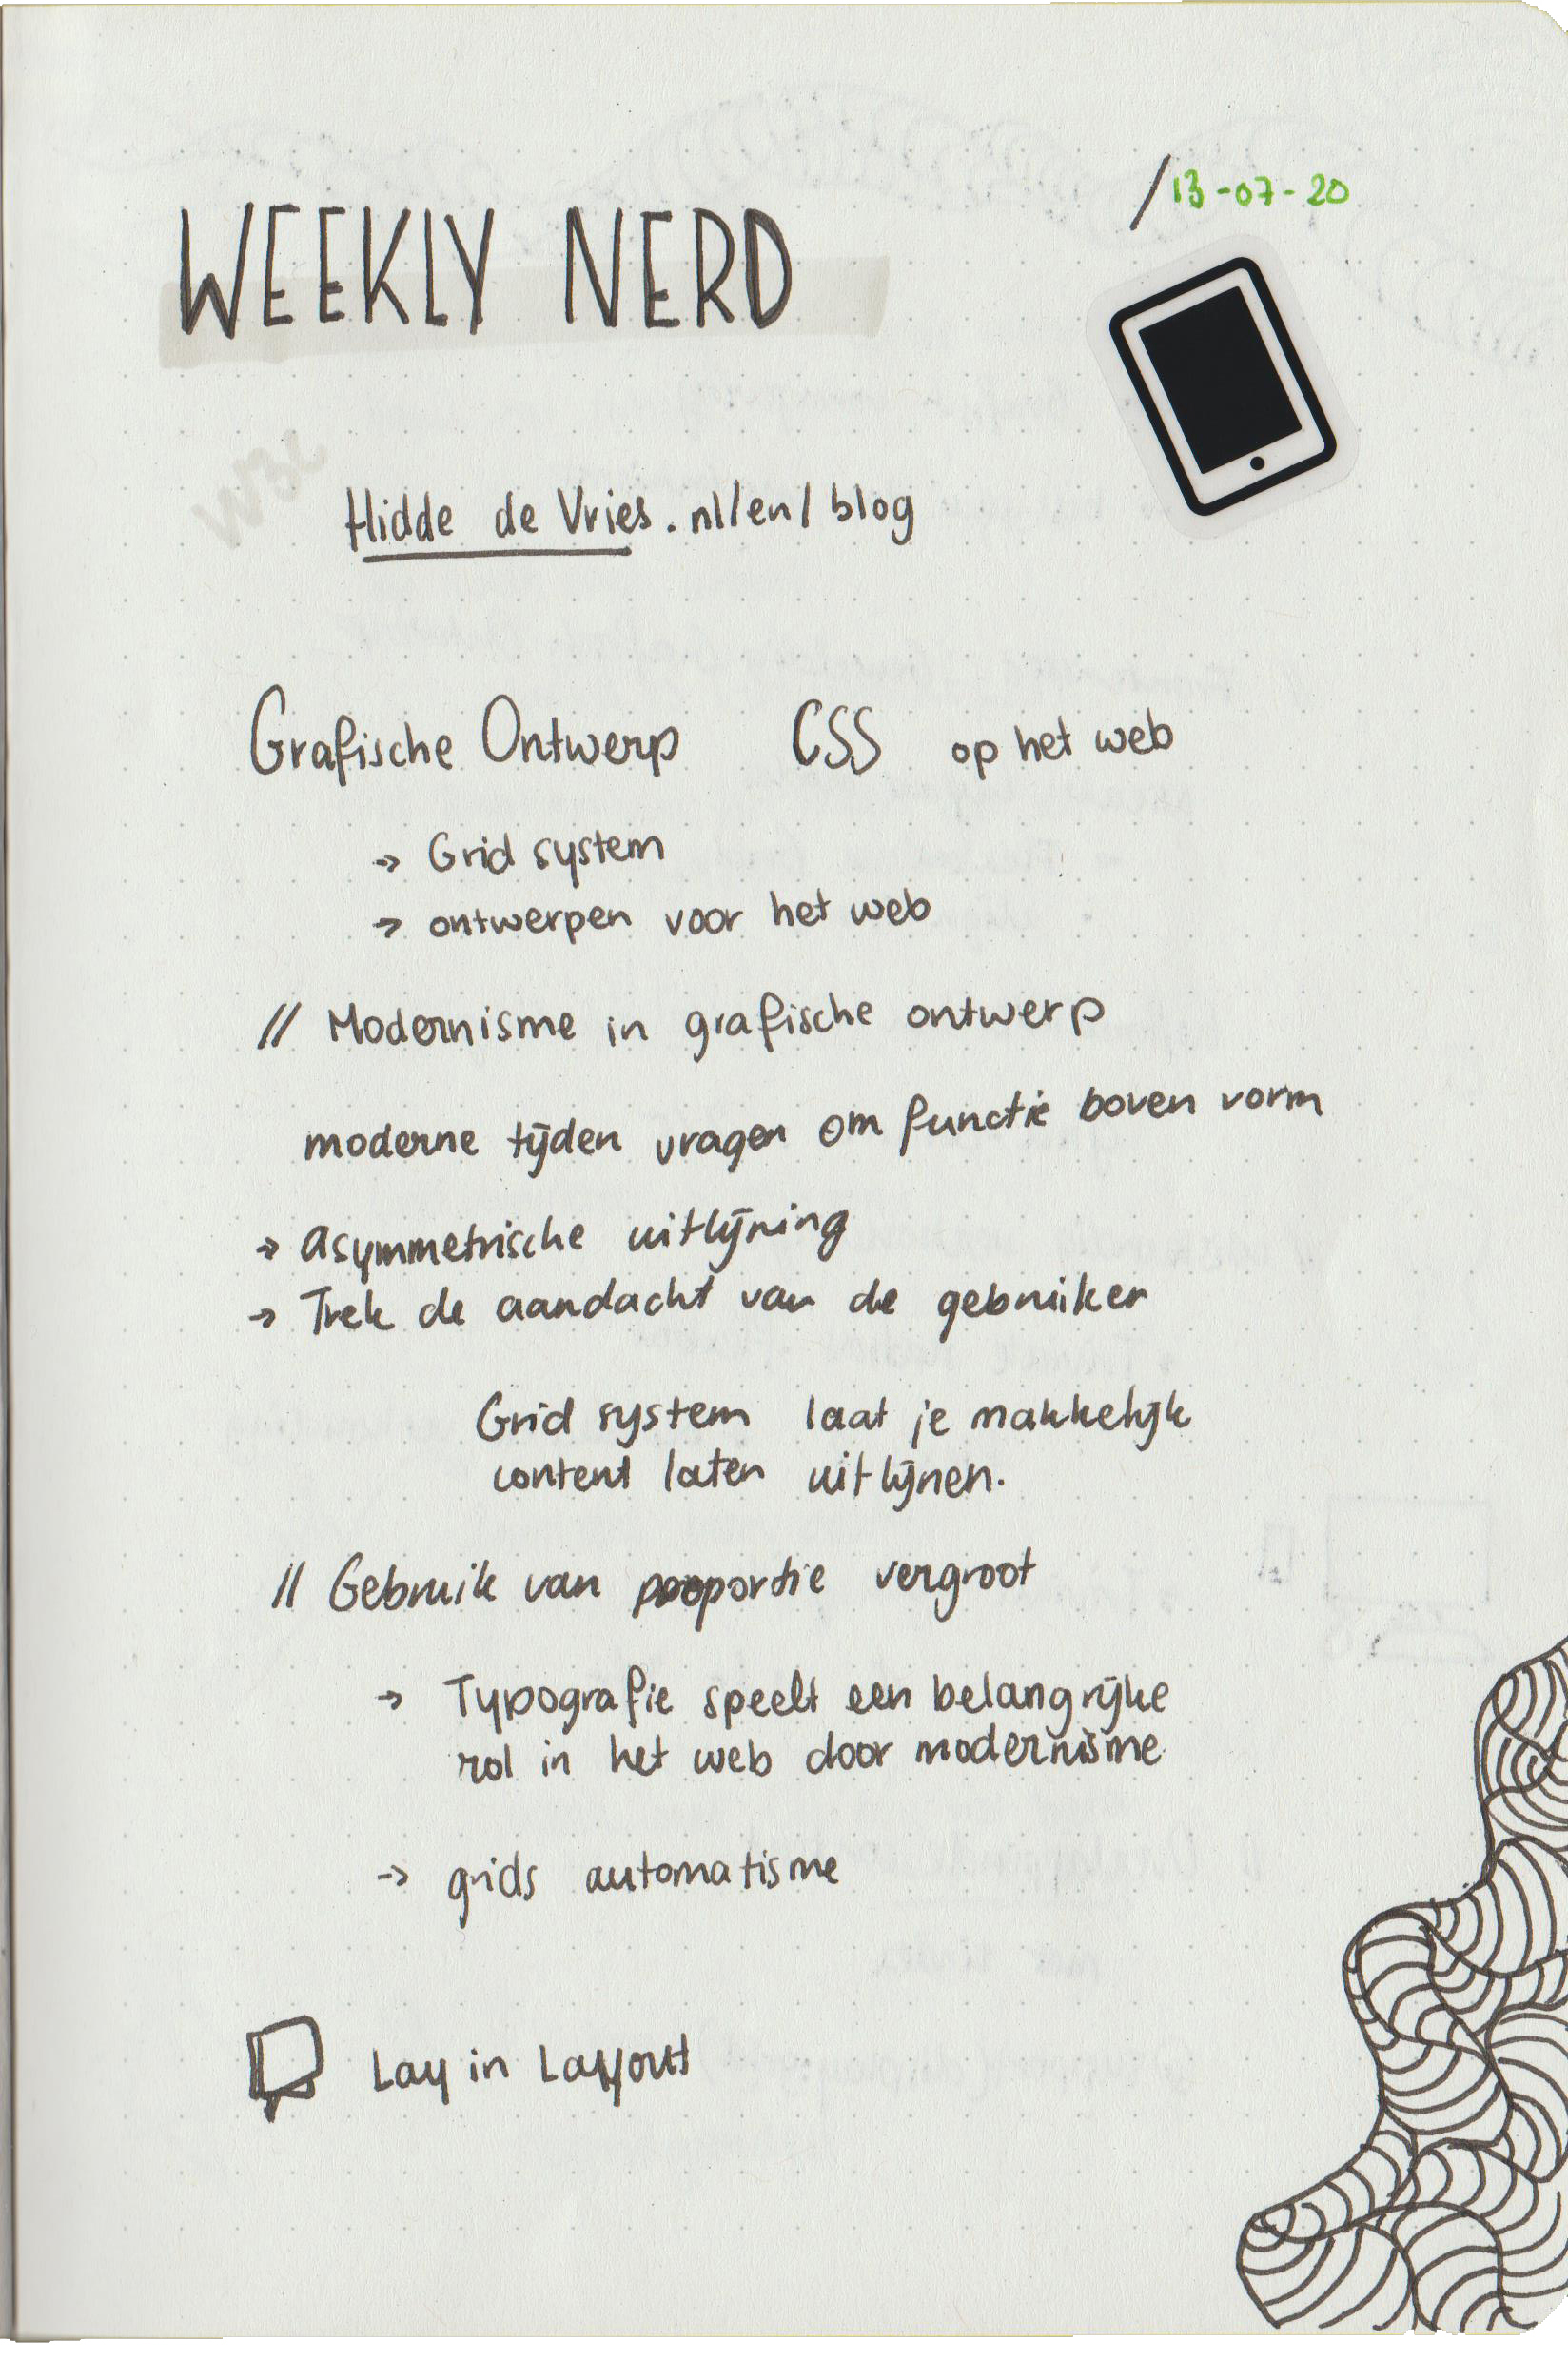 /13-07-20
WEEKLY NERD
W3C
Hidde de Vries.nl/en/blog
Grafische Ontwerp CSS op het web
→ Grid system
→ ontwerpen voor het web
// Modernisme in grafische ontwerp
moderne tijden vragen om functie boven vorm
→ asymmetrische uitlijning
→ Trek de aandacht van de gebruiker
Grid system laat je makkelijk
content laten uitlijnen.
// Gebruik van proportie vergroot
→ Typografie speelt een belangrijke
rol in het web door modernisme
→ grids automatisme
Lay in Layout